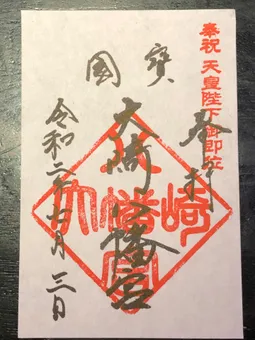 奉祝 天皇陛下御即位
奉拝
國寶
大崎八幡宮
大崎八幡宮
令和二年 月三日